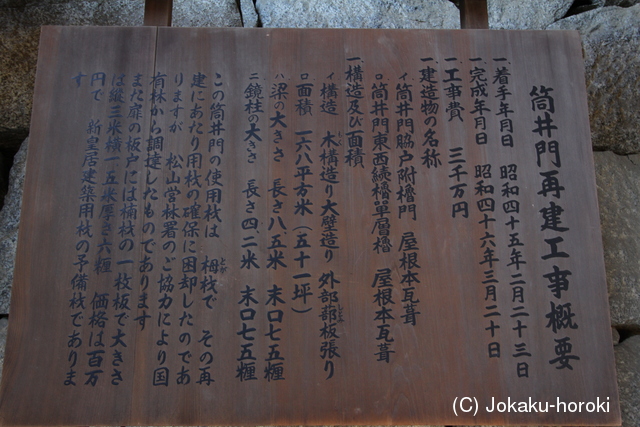 筒井門再建工事概要
一、着手年月日 昭和四十五年二月二十三日
一、完成年月日 昭和四十六年三月二十日
一、工事費 三千万円
一、建造物の名称
イ、筒井門脇戸附櫓門 屋根本瓦葺
ロ、筒井門東西続櫓単層櫓 屋根本瓦葺
一、構造及び面積
イ、構造 木構造り大壁造り 外部板張り
ロ、面積 一六八平方米(五十一坪)
ハ、梁の大きさ 長さ八、五米 末口七五糎
ニ、鏡柱の大きさ 長さ四、二米 末口七五糎
この筒井門の使用材は 栂材で その再
とが
建にあたり用材の確保に困却したのであ
りますが 松山営林署のご協力により国
有林から調達したものであります
まだ扉の板戸には楠材の一枚板で大きさ
は縦三米横一、五米厚さ六糎 価格は百万
円で 新皇居建築用材の予備材でありま
す
(C) Jokaku-horoki